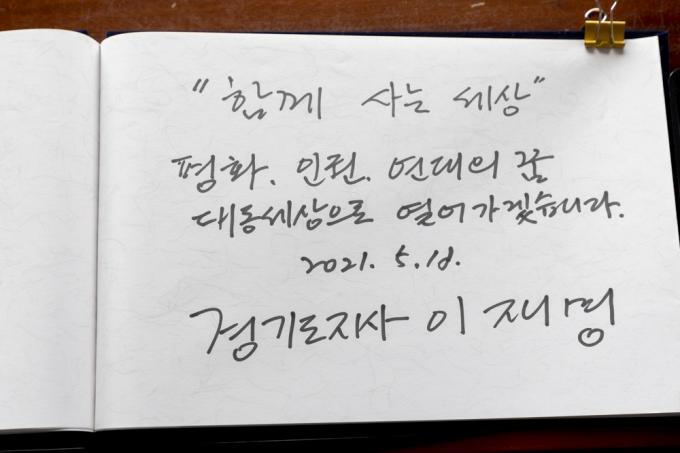 "함께 사는 세상"
평화. 인권. 연대의 꿈
대동세상으로 열어가겠습니다.
2021. 5. 18.
경기도지사 이재명